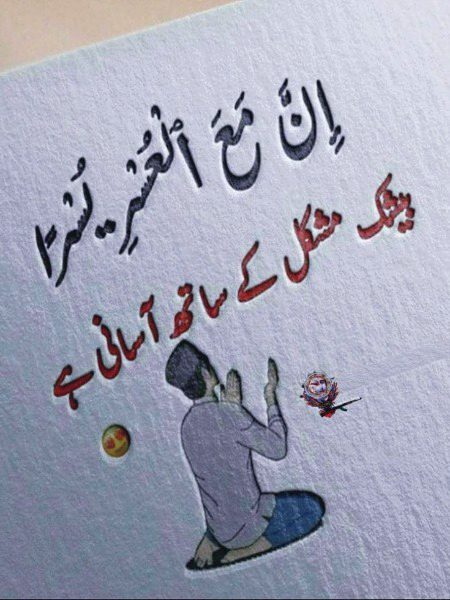 إِنَّ مَعَ ٱلْعُسْرِ يُسْرًا
بیشک مشکل کے ساتھ آسانی ہے